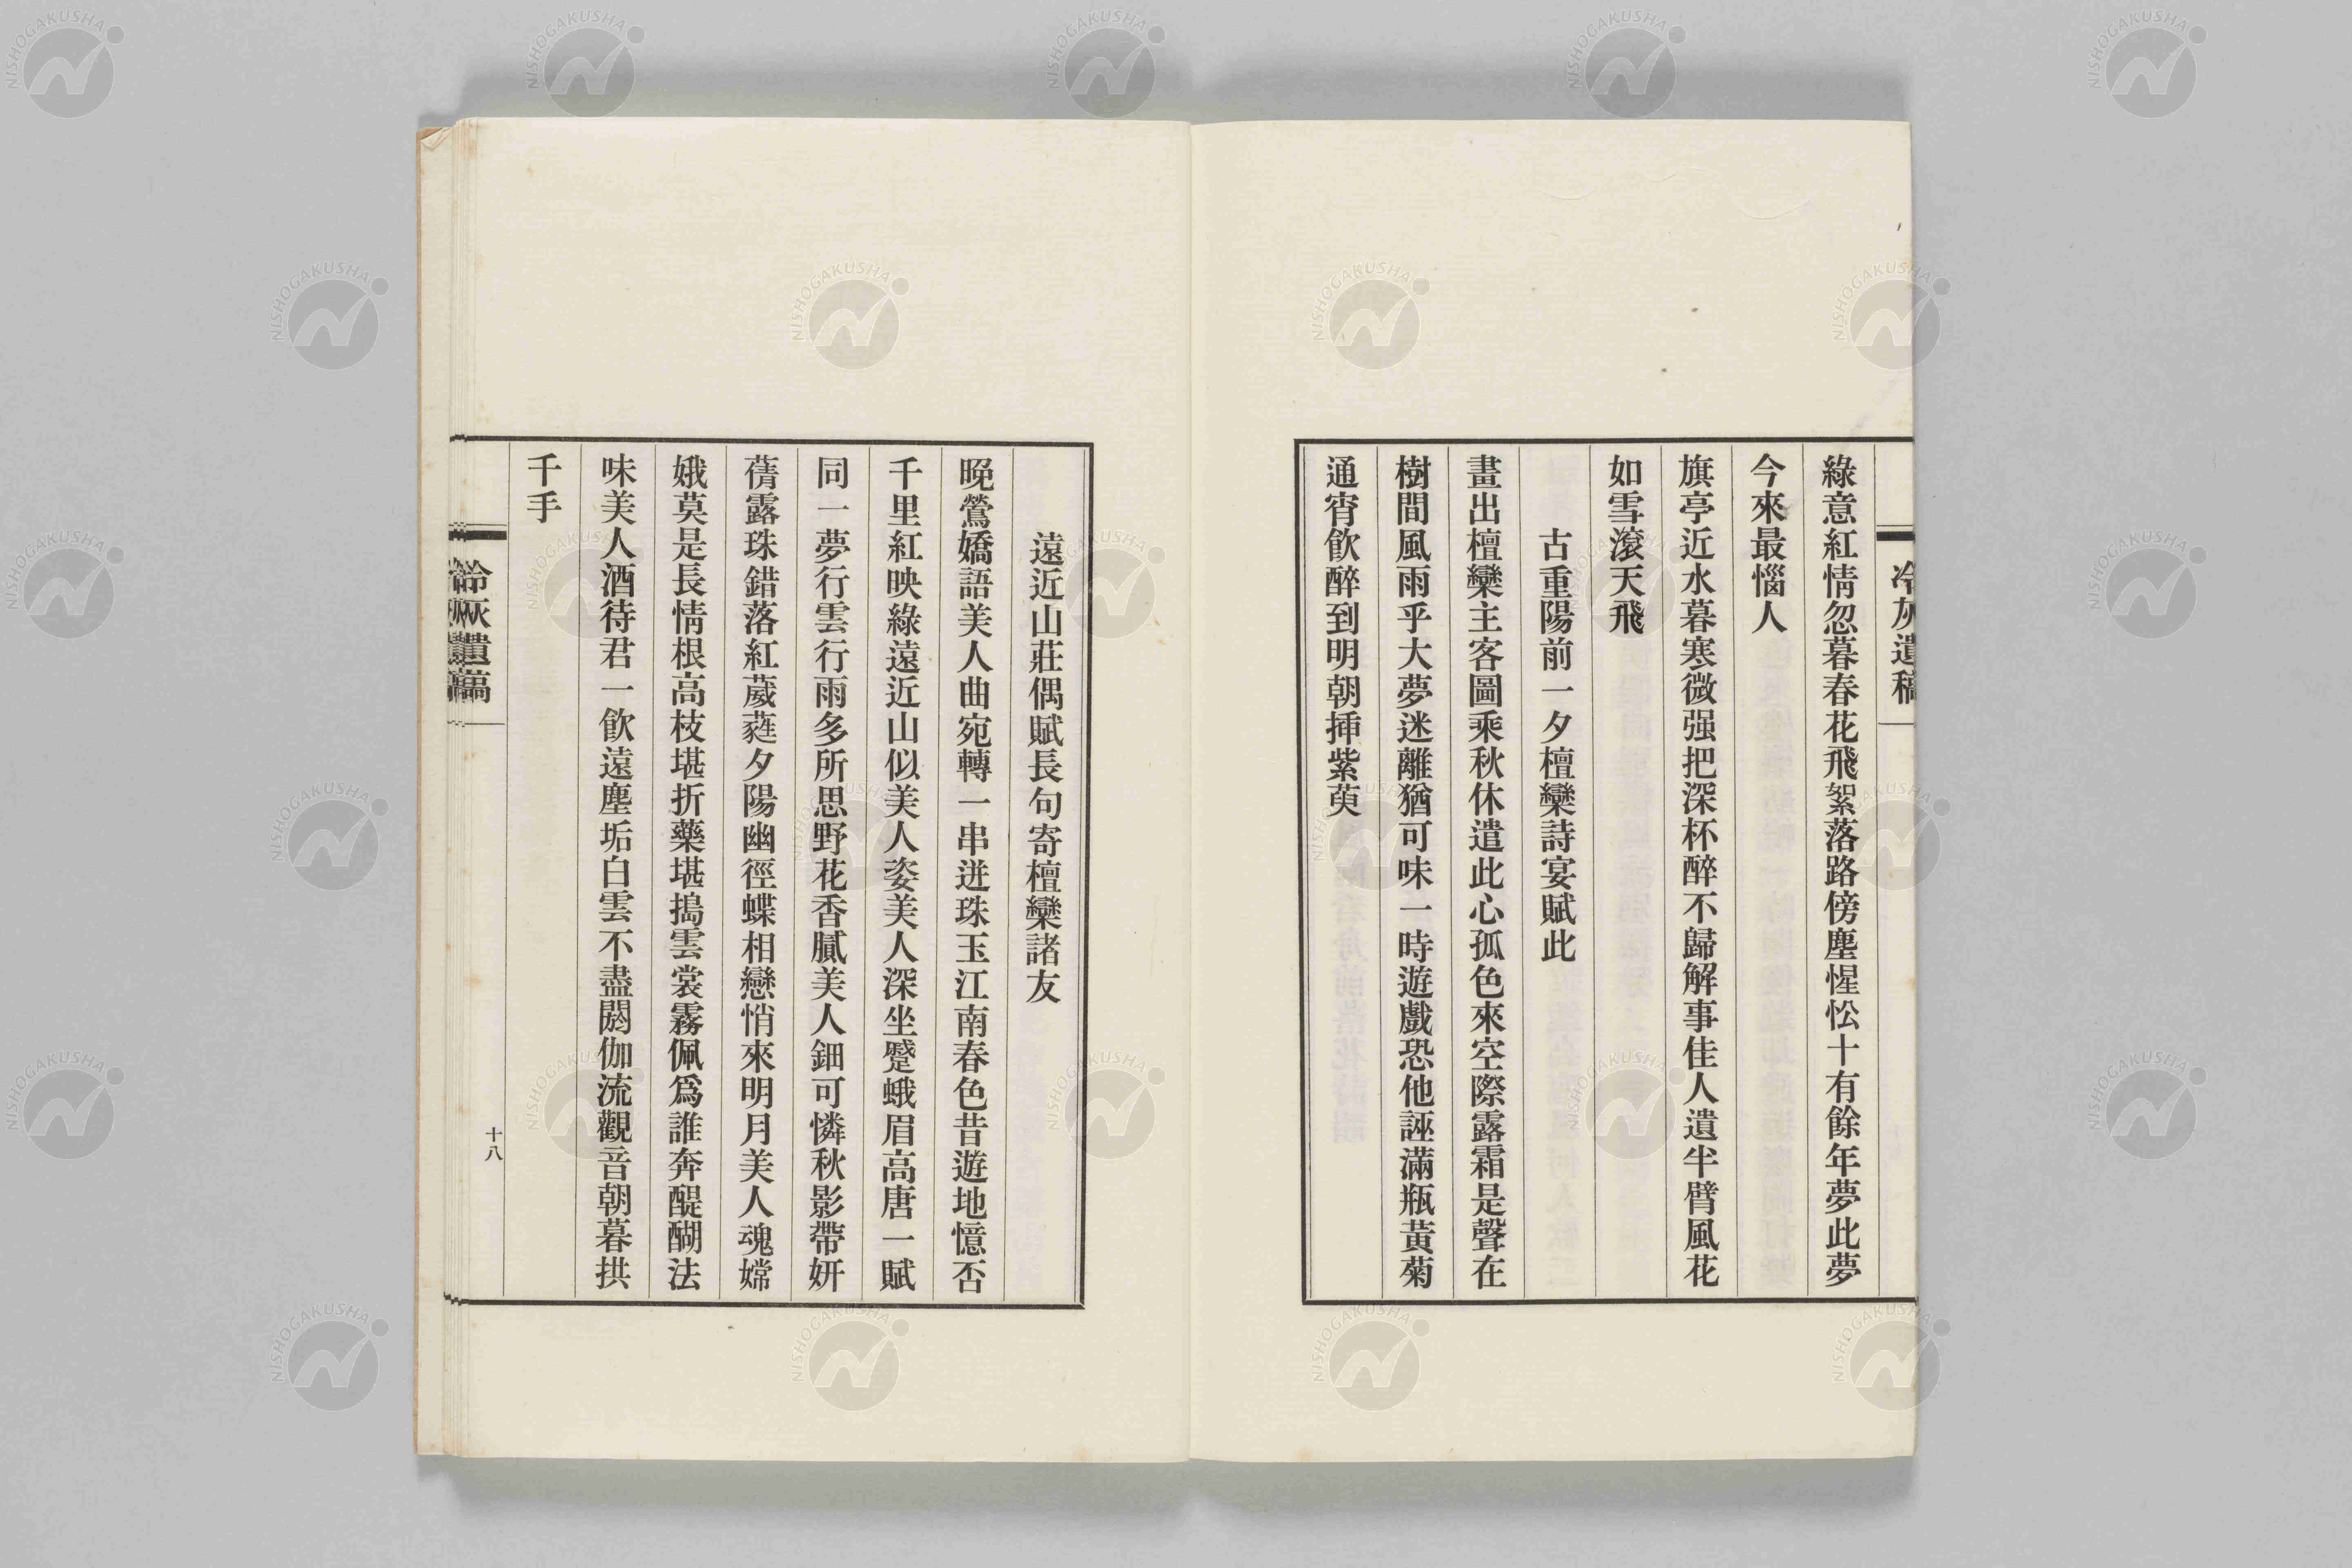 冷灰遺稿
綠意紅情忽暮春花飛絮落路傍塵惺忪十有餘年夢此夢
今來最惱人
旗亭近水暮寒微强把深杯醉不歸解事佳人遺半臂風花
如雪滾天飛
古重陽前一夕檀欒詩宴賦此
畫出檀欒主客圖乘秋休遣此心孤色來空際露霜是聲在
樹間風雨乎大夢迷離猶可味一時遊戲恐他誣滿瓶黃菊
通宵飮醉到明朝揷紫萸
遠近山莊偶賦長句寄檀欒諸友
晚鶯嬌語美人曲宛轉一串迸珠玉江南春色昔遊地憶否
千里紅映綠遠近山似美人姿美人深坐蹙蛾眉高唐一賦
同一夢行雲行雨多所思野花香膩美人鈿可憐秋影帶妍
蒨露珠錯落紅葳蕤夕陽幽徑蝶相戀悄來明月美人魂嫦
娥莫是長情根高枝堪折藥堪搗雲裳霧佩爲誰奔醍醐法
味美人酒待君一飮遠塵垢白雲不盡閼伽流觀音朝暮拱
千手
冷灰遺稿
十八
NISHOGAKUSHA